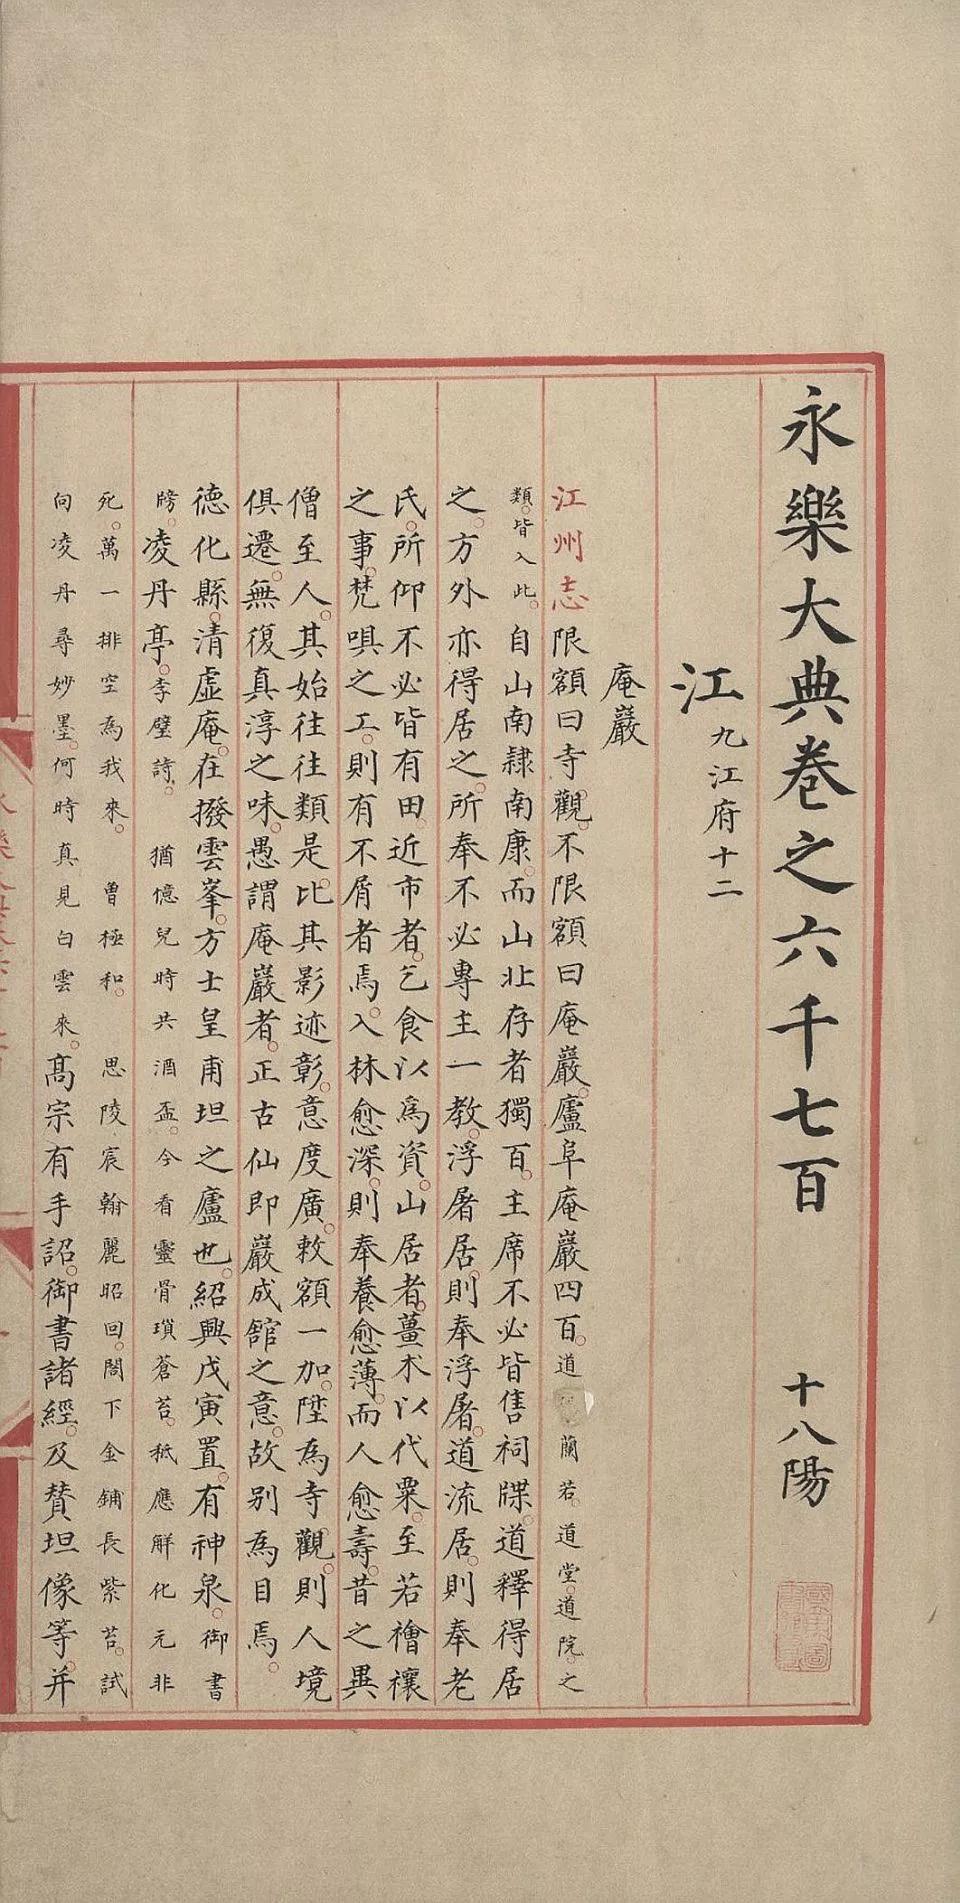 永樂大典卷之六千七百 十八陽
江 九江府十二
庵巖
江州志限額曰寺觀。不限額曰庵巖。廬阜庵巖四百。道蘭若。道堂。道院。之
類。皆入此。自山南隷南康。而山北存者獨百。主席不必皆售祠牒。道釋得居
之。方外亦得居之。所奉不必專主一教。浮屠居。則奉浮屠。道流居。則奉老
氏。所仰不必皆有田。近市者。乞食以爲資。山居者。薑术以代粟。至若禬禳
之事。梵唄之工。則有不屑者焉。入林愈深。則奉養愈薄。而人愈壽。昔之異
僧至人。其始往往類是。比其影迹彰。意度廣。敕額一加。陞為寺觀。則人境
俱遷。無復真淳之味。愚謂庵巖者。正古仙即巖成館之意。故别為目焉。
德化縣。清虛庵。在撥雲峯。方士皇甫坦之廬也。紹興戊寅置。有神泉。御書
牓。凌丹亭。李壁詩。 猶憶兒時共酒盃。今看靈骨瑣蒼苔。秖應解化元非
死。萬一排空為我來。 曾極和。 思陵宸翰麗昭回。閤下金鋪長紫苔。試
向凌丹尋妙墨。何時真見白雲來。高宗有手詔。御書諸經。及贊坦像等。并